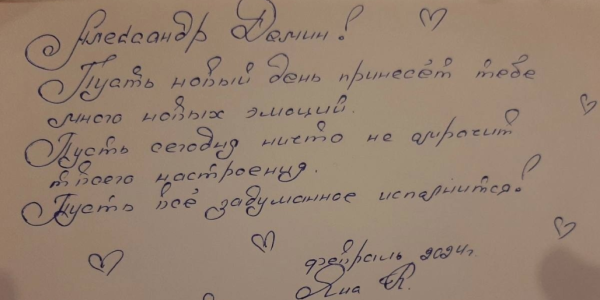 Александр Демин!
Пусть новый день принесёт тебе
много новых эмоций.
Пусть сегодня ничто не омрачит
твоего настроения.
Пусть всё задуманное исполнится!
февраль 2024г.
Яна Р.